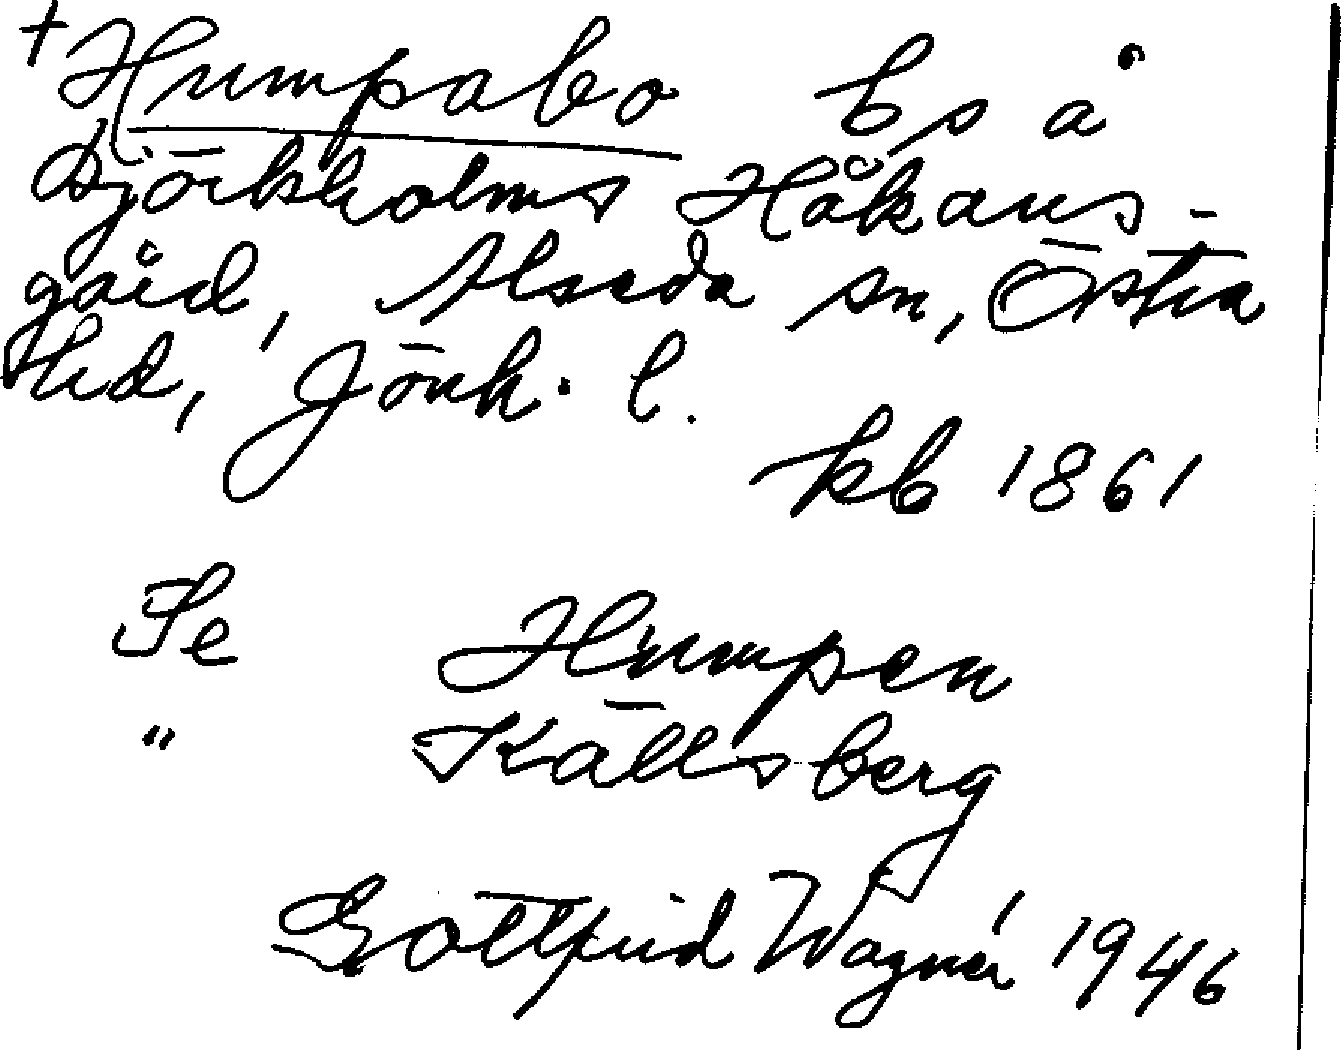 + Humpabo bs å
Björkholms Håkans-
gård, Alseda sn, Östra
hd, Jönk. l.
kb 1861
Se Humpen
" Källsberg
Gottfrid Wagnér 1946